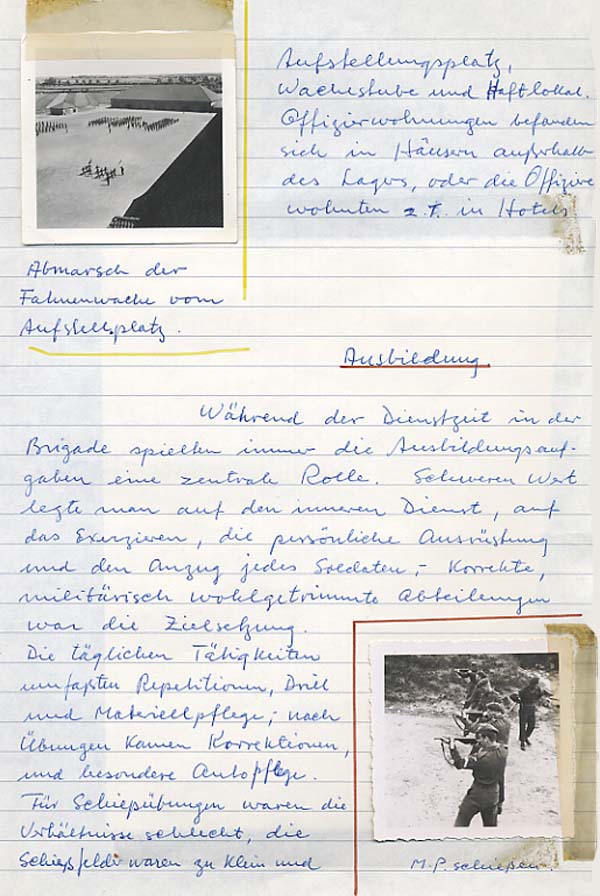 Aufstellungsplatz,
Wachestube und Haftlokal.
Offizierwohnungen befanden
sich in Häusern außerhalb
des Lagers, oder die Offizire
wohnten z.T. in Hotels
Abmarsch der
Fahnenwache vom
Aufstellsplatz.
Ausbildung
Während der Dienstzeit in der
Brigade spielten immer die Ausbildungsauf-
gaben eine zentrale Rolle. Schweren Wert
legte man auf den inneren Dienst, auf
das Exerzieren, die persönliche Ausrüstung
und den Anzug jedes Soldaten,- Korrekte,
militärisch wohlgetrimmte Abteilungen
war die Zielsetzung.
Die täglichen Tätigkeiten
umfaßten Repetitionen, Drill
und Materiellpflege; nach
Übungen kamen Korrektionen,
und besondere Autopflege.
Für Schießübungen waren die
Verhältnisse schlecht, die
Schießfelder waren zu klein und
M.P. schießen.